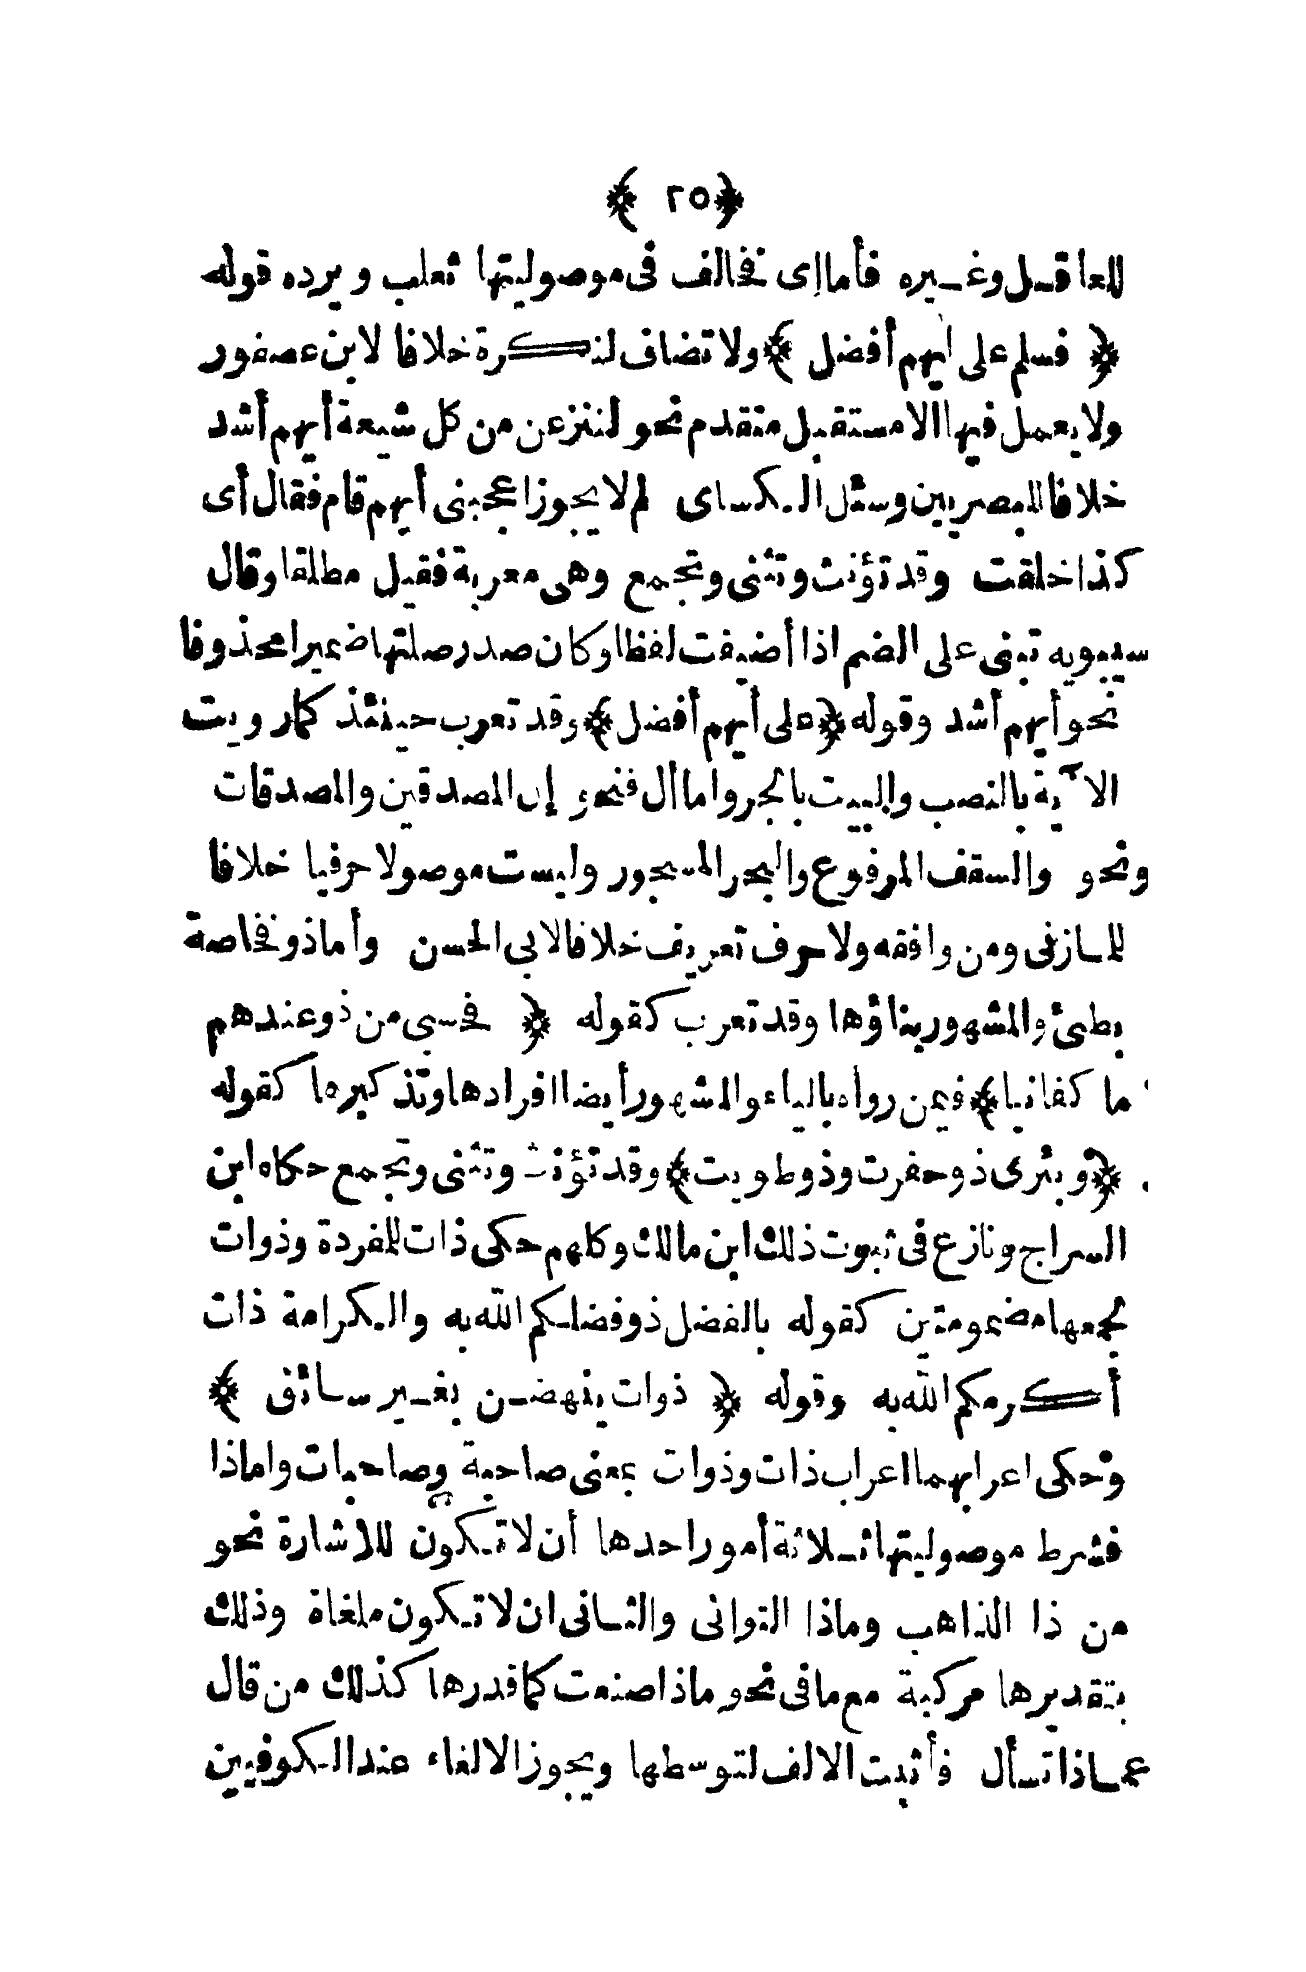 ﴿٢٥﴾
للعاقل وغيره فأما اى فخالف فى موصوليتها ثعلب ويرده قوله
﴿ فسلم على أيهم أفضل ﴾ ولا تضاف لنكرة خلافا لابن عصفور
ولا يعمل فيها الا مستقبل متقدم نحو لننزعن من كل شيعة أيهم أشد
خلافا للبصريين وسئل الكساى لم لا يجوز اعجبنى أيهم قام فقال أى
كذا خلقت وقد تؤنث وتثنى وتجمع وهى معربة فقيل مطلقا وقال
سيبويه تبنى على الضم اذا أضيفت لفظا وكان صدر صلتها ضميرا محذوفا
نحو أيهم أشد وقوله ﴿ على أيهم أفضل ﴾ وقد تعرب حينئذ كما رويت
الآية بالنصب والبيت بالجر واما أل فنحو إن المصدقين والمصدقات
ونحو والسقف المرفوع والبحر المسجور وليست موصولا حرفيا خلافا
للمازنى ومن وافقه ولا حرف تعريف خلافا لابى الحسن وأما ذو فخاصة
بطيئ والمشهور بناؤها وقد تعرب كقوله ﴿ فحسبى من ذو عندهم
ما كفانيا ﴾ فيمن رواه بالياء والمشهور أيضا افرادها وتذكيرها كقوله
﴿ وبئرى ذو حفرت وذو طويت ﴾ وقد تؤنث وتثنى وتجمع حكاه ابن
السراج ونازع فى ثبوت ذلك ابن مالك وكلهم حكى ذات للمفردة وذوات
لجمعها مضمومتين كقوله بالفضل ذو فضلكم الله به والكرامة ذات
أكرمكم الله به وقوله ﴿ ذوات ينهضن بغير سائق ﴾
وحكى اعرابهما اعراب ذات وذوات بمعنى صاحبة وصاحبات واما ذا
فشرط موصوليتها ثلاثة أمور احدها أن لا تكون للاشارة نحو
من ذا الذاهب وماذا التوانى والثانى ان لا تكون ملغاة وذلك
بتقديرها مركبة مع ما فى نحو ماذا صنعت كما قدرها كذلك من قال
عماذا تسأل فأثبت الالف لتوسطها ويجوز الالغاء عند الكوفيين